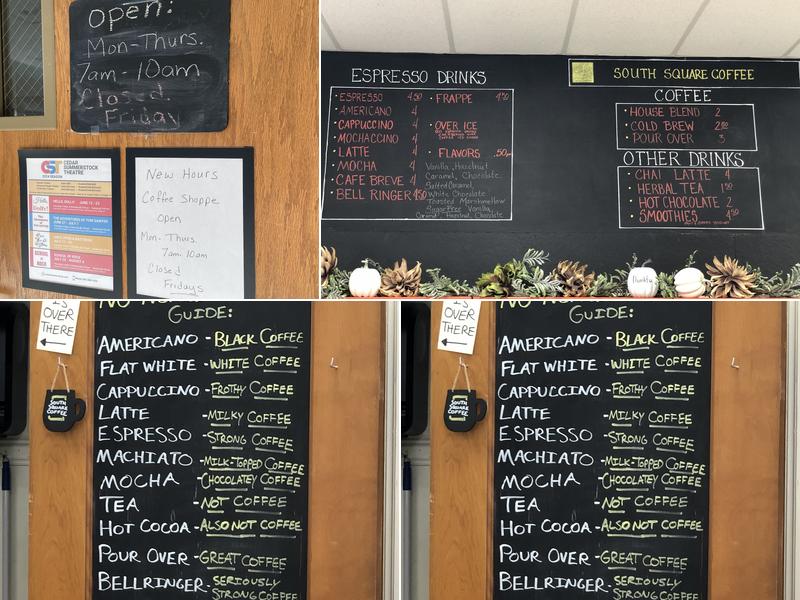 Open:
Mon-Thurs.
7am-10am
Closed
Friday
CST CEDAR
SUMMERSTOCK
THEATRE
HELLO, DOLLY!
New Hours
Coffee Shoppe
Open
Mon-Thurs.
7am-10am
Closed
Fridays
ESPRESSO DRINKS
• ESPRESSO 4.50
• AMERICANO 4
• CAPPUCCINO 4
• MOCHACCINO 4
• LATTE 4
• MOCHA 4
• CAFE BREVE 4
• BELL RINGER 4.50
• FRAPPE
• OVER ICE
• FLAVORS .50
Vanilla, Hazelnut
Caramel, Chocolate
Salted Caramel,
White Chocolate
Toasted Marshmellow
Sugar Free Vanilla,
Caramel, Hazelnut, Chocolate
SOUTH SQUARE COFFEE
COFFEE
• HOUSE BLEND 2
• COLD BREW
• POUR OVER 3
OTHER DRINKS
• CHAI LATTE 4
• HERBAL TEA
• HOT CHOCOLATE 2
• SMOOTHIES 4.50
IS
OVER
THERE
SOUTH
SQUARE
COFFEE
GUIDE:
AMERICANO - BLACK COFFEE
FLAT WHITE - WHITE COFFEE
CAPPUCCINO - FROTHY COFFEE
LATTE - MILKY COFFEE
ESPRESSO - STRONG COFFEE
MACHIATO - MILK-TOPPED COFFEE
MOCHA - CHOCOLATEY COFFEE
TEA - NOT COFFEE
HOT COCOA - ALSO NOT COFFEE
POUR OVER - GREAT COFFEE
BELLRINGER - SERIOUSLY
STRONG COFFEE
IS
OVER
THERE
SOUTH
SQUARE
COFFEE
GUIDE:
AMERICANO - BLACK COFFEE
FLAT WHITE - WHITE COFFEE
CAPPUCCINO - FROTHY COFFEE
LATTE - MILKY COFFEE
ESPRESSO - STRONG COFFEE
MACHIATO - MILK-TOPPED COFFEE
MOCHA - CHOCOLATEY COFFEE
TEA - NOT COFFEE
HOT COCOA - ALSO NOT COFFEE
POUR OVER - GREAT COFFEE
BELLRINGER - SERIOUSLY
STRONG COFFEE